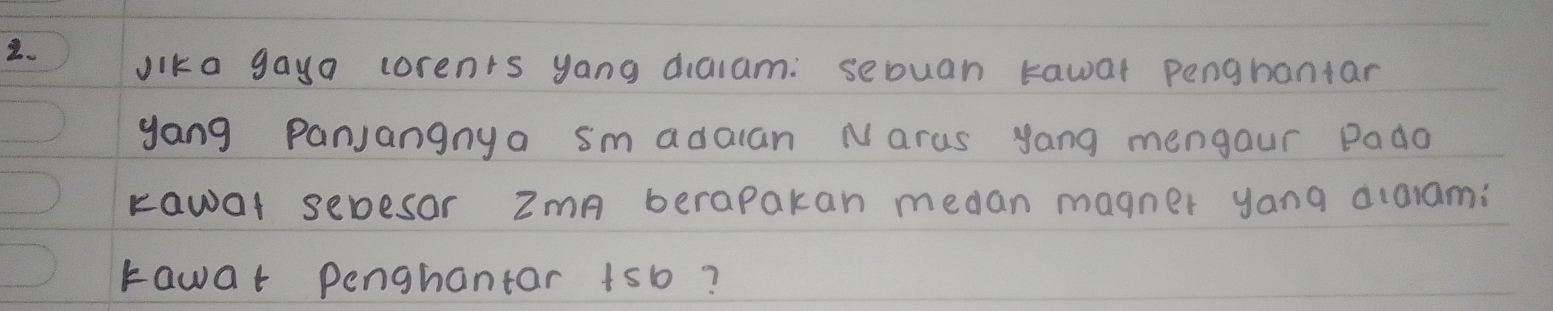 2. Jika gaya lorents yang dialami sebuah kawat penghantar
yang panjangnya 5m adalah N arus yang mengaur pada
kawat sebesar 2mA berapakah medan magnet yang dialami
kawat penghantar tsb?